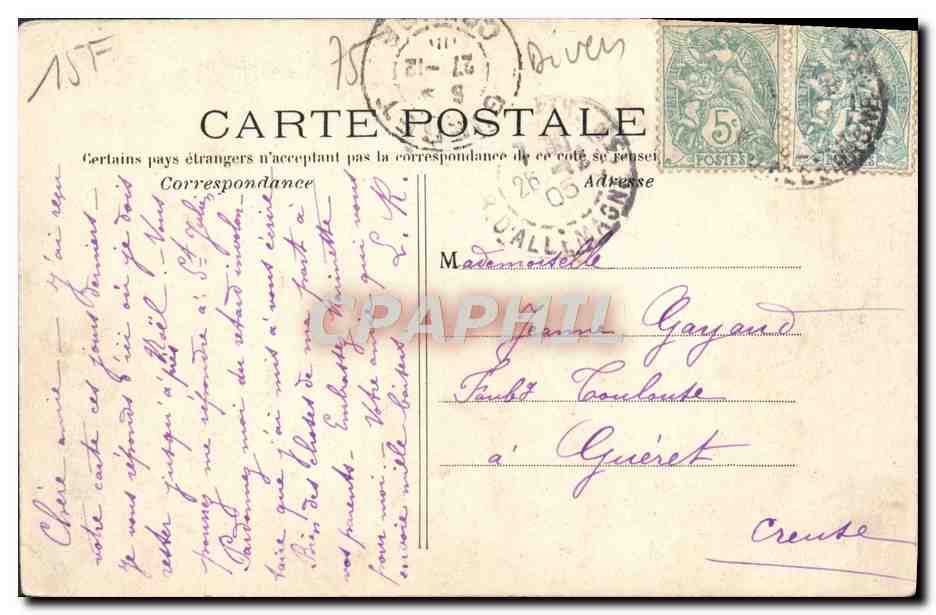 15F
75
Divers
CARTE POSTALE
Certains pays étrangers n'acceptant pas la correspondance de ce coté se rensei
Correspondance
Adresse
5c
POSTES
5c
POSTES
27 -12
26
05
R. D'ALLEMAGNE
CPAPHIL
Chère amie - J'ai reçu
votre carte ces jours derniers -
Je vous réponds d'ici où je dois
rester jusqu'à près Noël - Vous
pouvez me répondre à St Julien
Pardonnez moi du retard involon-
taire que j'ai mis à vous écrire
Bien des choses de ma part à
vos parents - Embrassez Ninette
pour moi - Votre amie qui vous
envoie mille baisers L. R.
Mademoiselle
Jeanne Gayaud
Faubg Toulouse
à Guéret
Creuse